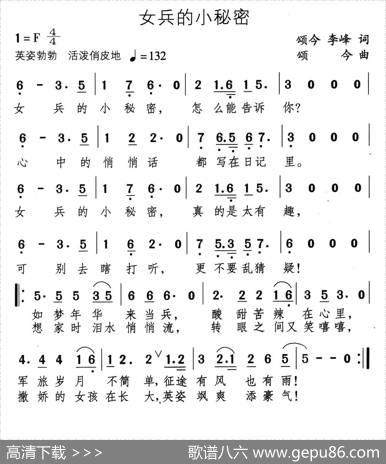 女兵的小秘密
1=F 4/4
颂今 李峰 词
英姿勃勃 活泼俏皮地 ♩=132
颂 今 曲
6 - 3· 5 | 1 7 6 · 0 | 2 1·6 1 5· | 3 0 0 0 |
女 兵 的 小 秘 密， 怎 么 能 告 诉 你？
6 - 3· 5 | 1 6 2 · 0 | 7 6·5 6 7· | 3 0 0 0 |
心 中 的 悄 悄 话 都 写 在 日 记 里。
6 - 3· 5 | 1 7 6 · 0 | 2 1·6 1 5· | 3 0 0 0 |
女 兵 的 小 秘 密， 真 的 是 太 有 趣，
6 - 3· 5 | 1 6 2 · 0 | 7 5·3 5 7· | 6 0 0 0 |
可 别 去 瞎 打 听， 更 不 要 乱 猜 疑！
如 梦 年 华 来 当 兵， 酸 甜 苦 辣 在 心 里，
想 家 时 泪 水 悄 悄 流， 转 眼 之 间 又 笑 嘻 嘻，
军 旅 岁 月 不 简 单，征 途 有 风 也 有 雨！
撒 娇 的 女 孩 在 长 大，英 姿 飒 爽 添 豪 气！
高清下载 >>>
歌谱八六 www.gepu86.com